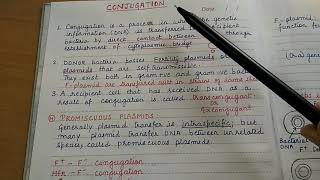 CONJUGATION
Date
1. Conjugation is a process in which genetic
information (cell) is transferred
bacteria by direct contact between
establishment of cytoplasmic bridge
2. Donor bacteria posses Fertility plasmids
plasmids that are self transmissible.
They exist both in gram +ve and gram -ve bacteria
F-plasmid are transferred with in strains of same
3. A recipient cell that has received DNA as a
result of conjugation is called transconjugant
OR
Exconjugant
Promiscuous Plasmids:
Generally plasmid transfer is intraspecific; but
many plasmid transfer DNA between unrelated
species called promiscuous plasmids.
F+ - F- conjugation
Hfr - F- conjugation
F-plasmid
Bacterial
DNA